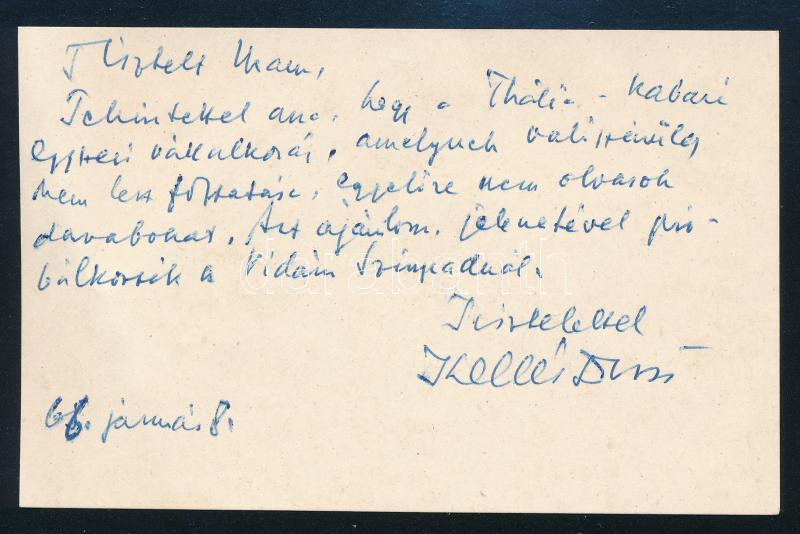 Tisztelt Uram,
Tekintettel arra, hogy a Thália - kabaré
egyszeri vállalkozás, amelynek valószínűleg
nem lesz folytatása, egyelőre nem olvasok
darabokat. Azt ajánlom, jelenetével pró-
bálkozzék a Vidám Színpadnál.
Tisztelettel
Kellér Dezső
66. január 8.
darabanth